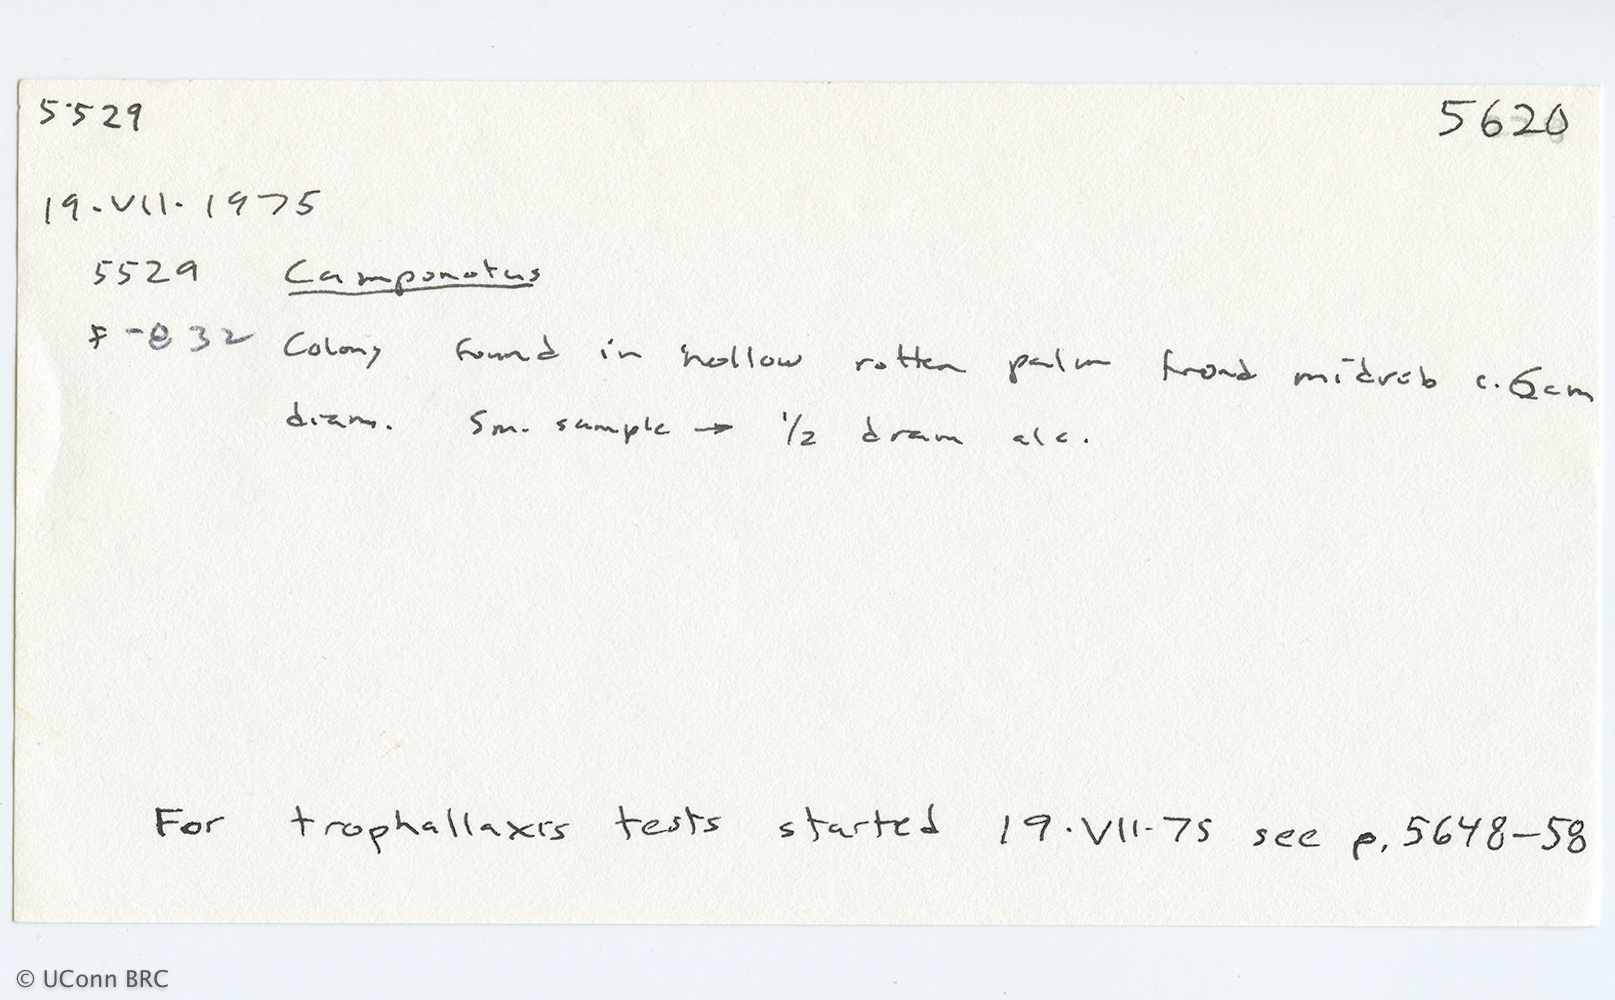 5529 5620
19·VII·1975
5529 Camponotus
F-832 Colony found in hollow rotten palm frond midrib c. 6cm
diam. Sm. sample → 1/2 dram alc.
For trophallaxis tests started 19·VII·75 see p. 5648–58
© UConn BRC